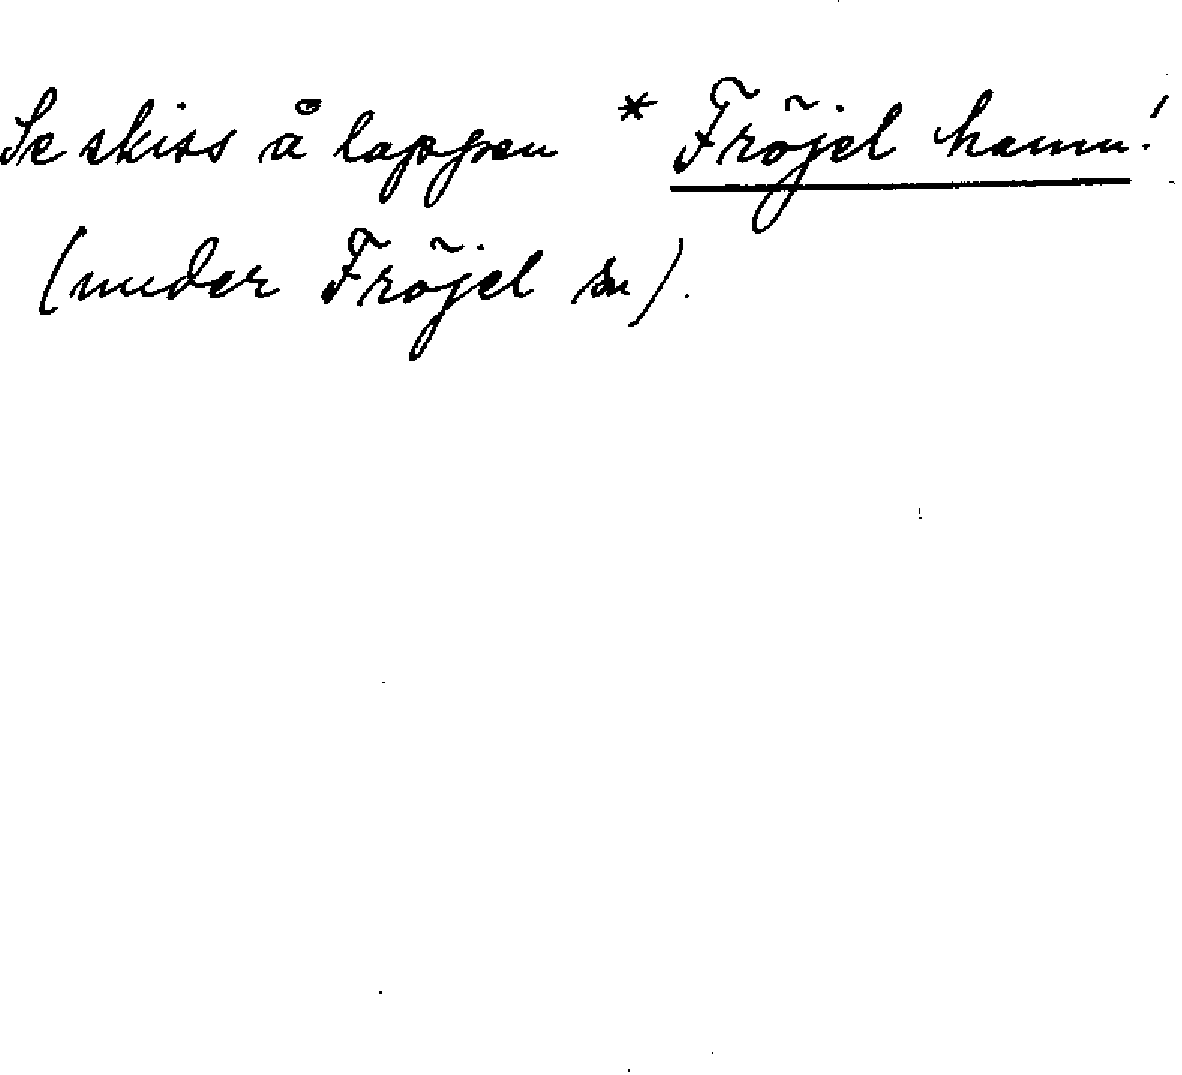 Se skiss å lappen * Fröjel hamn!
(under Fröjel sn).